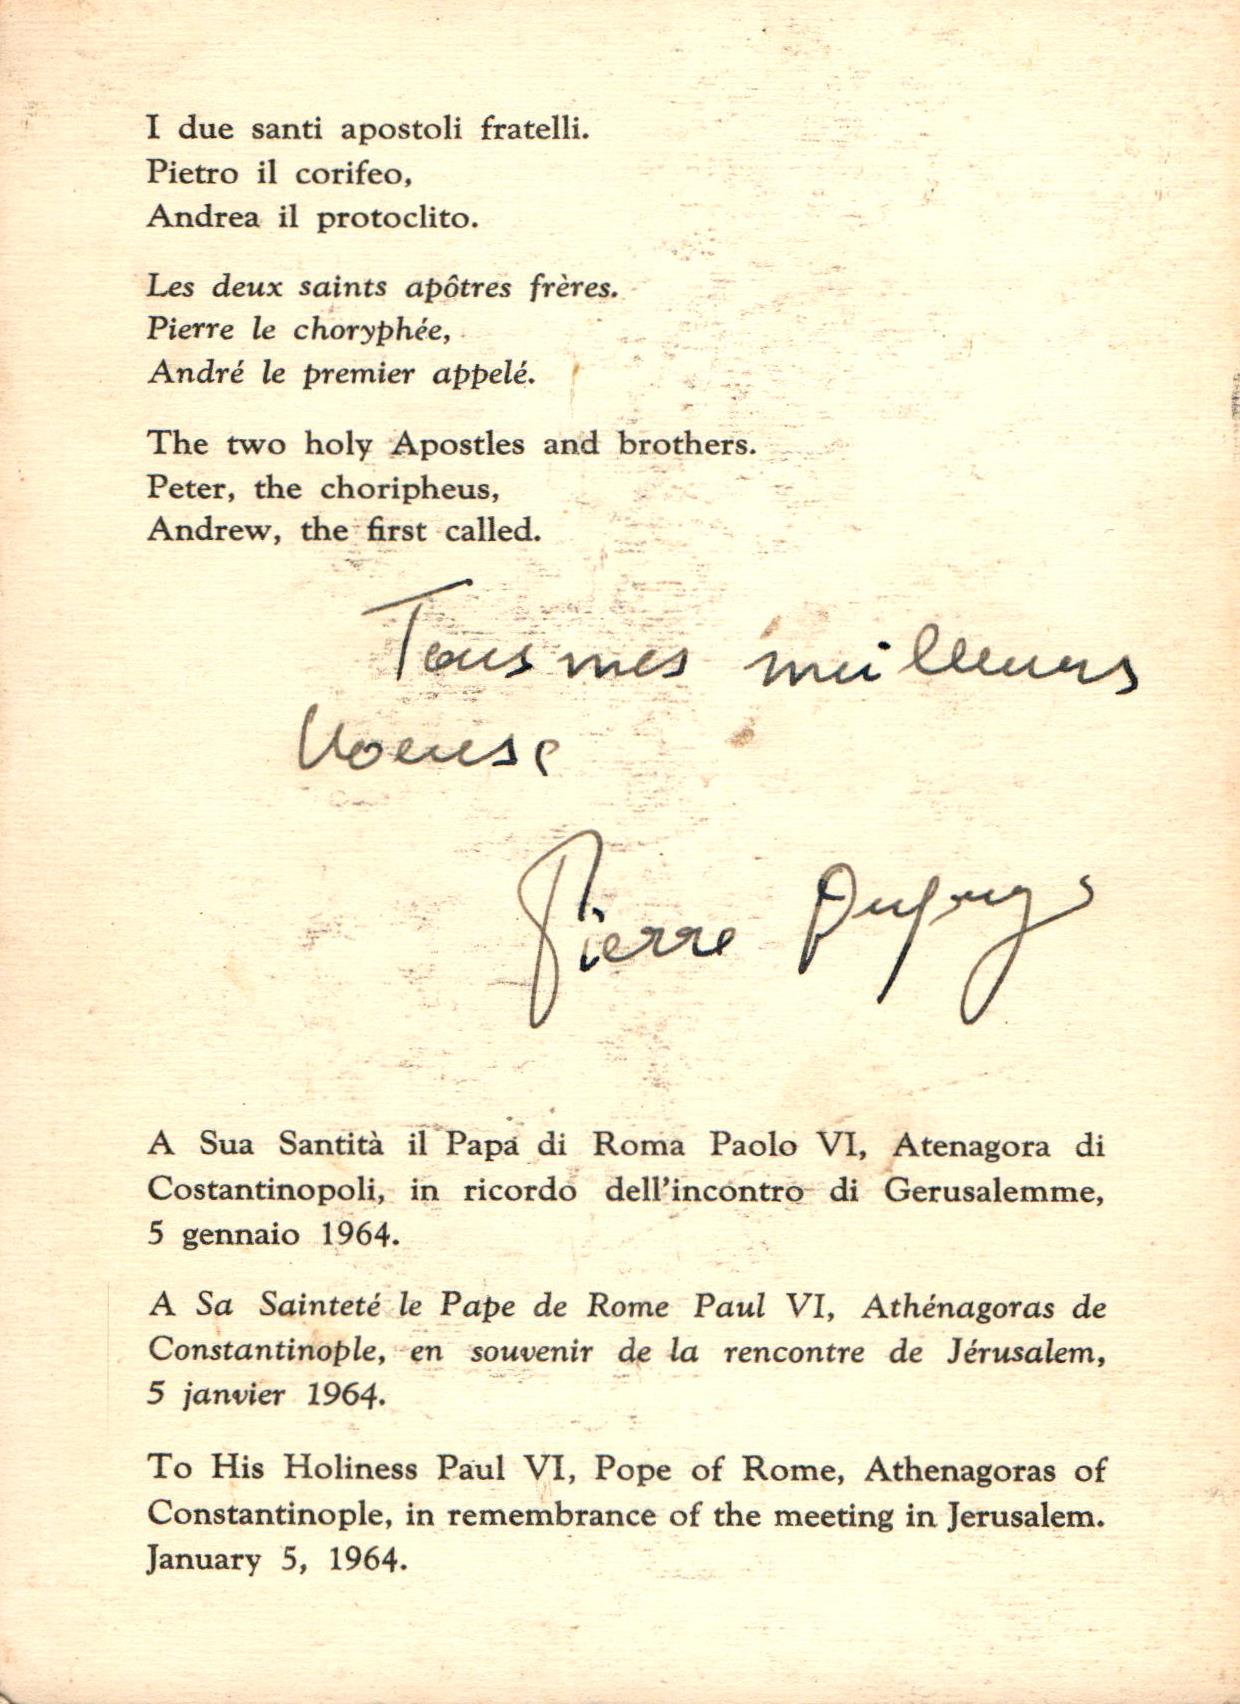 I due santi apostoli fratelli.
Pietro il corifeo,
Andrea il protoclito.
Les deux saints apôtres frères.
Pierre le choryphée,
André le premier appelé.
The two holy Apostles and brothers.
Peter, the choripheus,
Andrew, the first called.
Tous mes meilleurs
Pierre
A Sua Santità il Papa di Roma Paolo VI, Atenagora di
Costantinopoli, in ricordo dell'incontro di Gerusalemme,
5 gennaio 1964.
A Sa Sainteté le Pape de Rome Paul VI, Athénagoras de
Constantinople, en souvenir de la rencontre de Jérusalem,
5 janvier 1964.
To His Holiness Paul VI, Pope of Rome, Athenagoras of
Constantinople, in remembrance of the meeting in Jerusalem.
January 5, 1964.